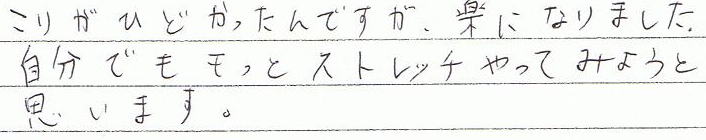 こりがひどかったんですが、楽になりました。
自分でももっとストレッチやってみようと
思います。